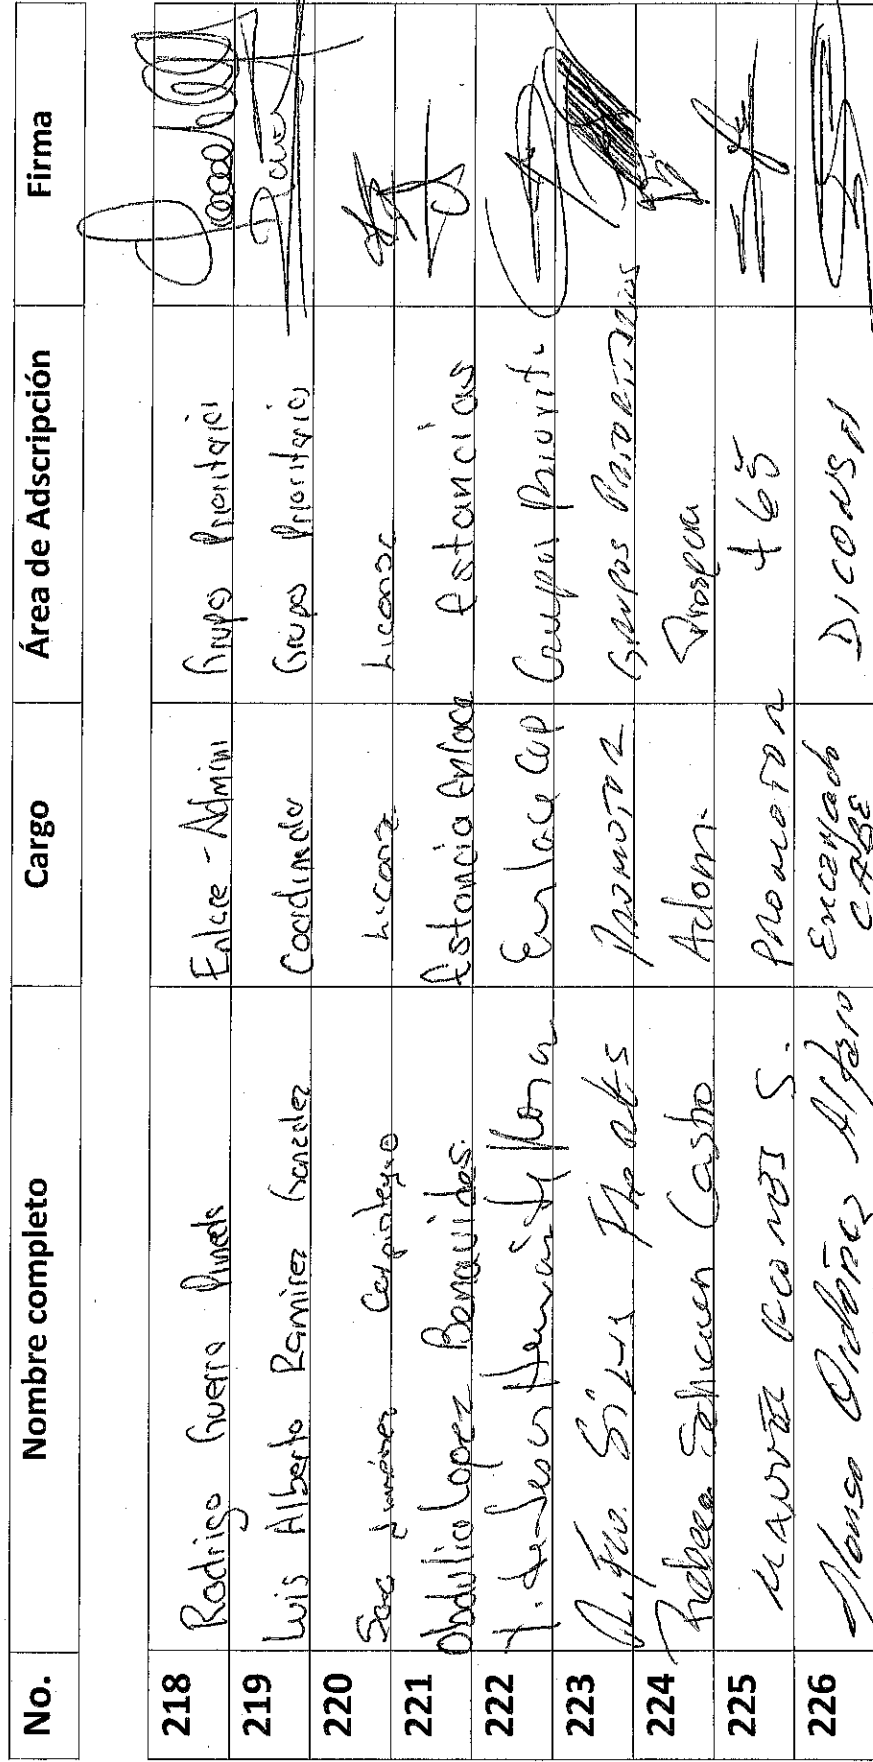 No. Nombre completo Cargo Área de Adscripción Firma
218 Rodrigo Guerra Pineda Enlace-Admini Grupos Prioritarios
219 Luis Alberto Ramirez Gonzalez Coordinador Grupos Prioritarios
220 Jiménez Liconsa Liconsa
221 Obdulio Lopez Benavides. Estancia Enlace Estancias
222 J. de Jesus Hernández Mora Enlace Cap Grupos Priorit.
223 Silva PROMOTOR GRUPOS PRIORITARIOS
224 Rebeca Castro Adom. Prospera
225 S. PROMOTOR +65
226 Alonso Ordóñez Alfaro Encargado CABE DICONSA